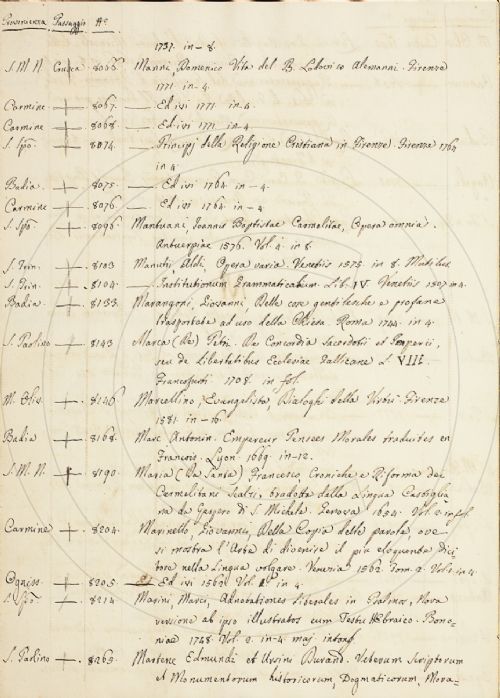 Provenienza Passaggio N.°
1737. in-8.
S. M. N. Crusca 8066. Manni, Domenico Vita del B. Lodovico Alemanni. Firenze
1771 in-4.
Carmine + 8067. — Ed ivi 1771 in-4.
Carmine + 8068. — Ed ivi 1771 in-4
S. Spo. + 8074. — Principj della Religione Cristiana in Firenze. Firenze 1764
in 4.
Badia + 8075. — Ed ivi 1764 in-4.
Carmine + 8076. — Ed ivi 1764 in-4.
S. Spo. + 8096. Mantuani, Joannis Baptistae Carmelitae, Opera omnia.
Antuerpiae 1576 Vol. 4. in 8.
S. Trin. + 8103 Manutii, Aldi, Opera varia. Venetiis 1575 in 8.
S. Trin. + 8104. — Institutionum Grammaticarum Lib. IV Venetiis 1507 in 4.
Badia + 8133. Marangoni, Giovanni, Delle cose gentilesche e profane
trasportate ad uso della Chiesa. Roma 1744. in 4.
S. Paolino + 8143. Marca (De) Petri. De Concordia Sacerdotii et Imperii,
seu de Libertatibus Ecclesiae Gallicane L. VIII.
Francofurti 1708. in fol.
M. Oliv. + 8146. Marcellino, Evangelista, Dialoghi della Virtù. Firenze
1581. in-16.
Badia + 8168. Marc Antonin. Empereur Pensees Morales traduites en
François. Lyon. 1669. in-12.
S. M. N. + 8190. Maria (Da Santa) Francesco, Croniche e Riforma dei
Carmelitani Scalzi, tradotta dalla lingua Castiglia
na da Gaspero di S. Michele. Genova 1654. Vol. 2 in fol.
Carmine + 8204. Marinello, Giovanni, Della Copia delle parole, ove
si mostra l'Arte di divenire il più eloquente dici
tore nella lingua volgare. Venezia 1562. Tom. 2. Vol. 1. in 4.
Ogniss. + 8205. Ed ivi 1562. Vol. in 4.
S. Spo. + 8214 Masini, Marci, Adnotationes Literales in Psalmos, Nova
versione ab ipso illustratos cum Textu Hebraico. Bono-
niae 1748. Vol. 2. in-4. maj.
S. Paolino + 8265. Martene Edmundi et Ursini Durand. Veterum Scriptorum
et Monumentorum historicorum, Dogmaticorum, Mora-